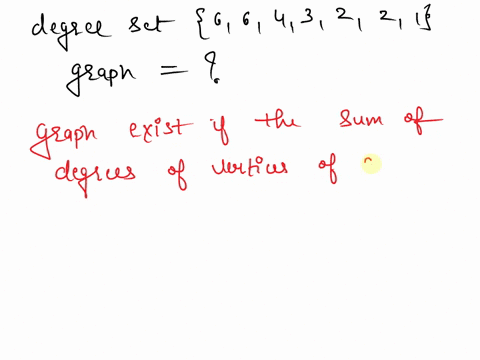 degree set {6, 6, 4, 3, 2, 2, 1}
graph = ?
graph exist if the sum of
degrees of vertices of